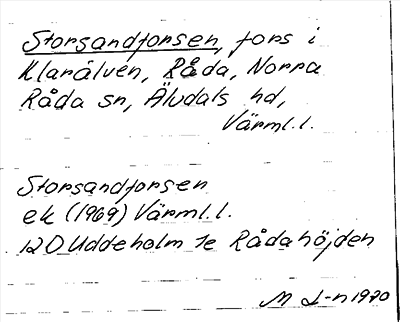 Storsandforsen, fors i
Klarälven, Råda, Norra
Råda sn, Älvdals hd,
Värml.l.
Storsandforsen
ek (1969) Värml.l.
12D Uddeholm 1e Rådahöjden
M L-n 1970